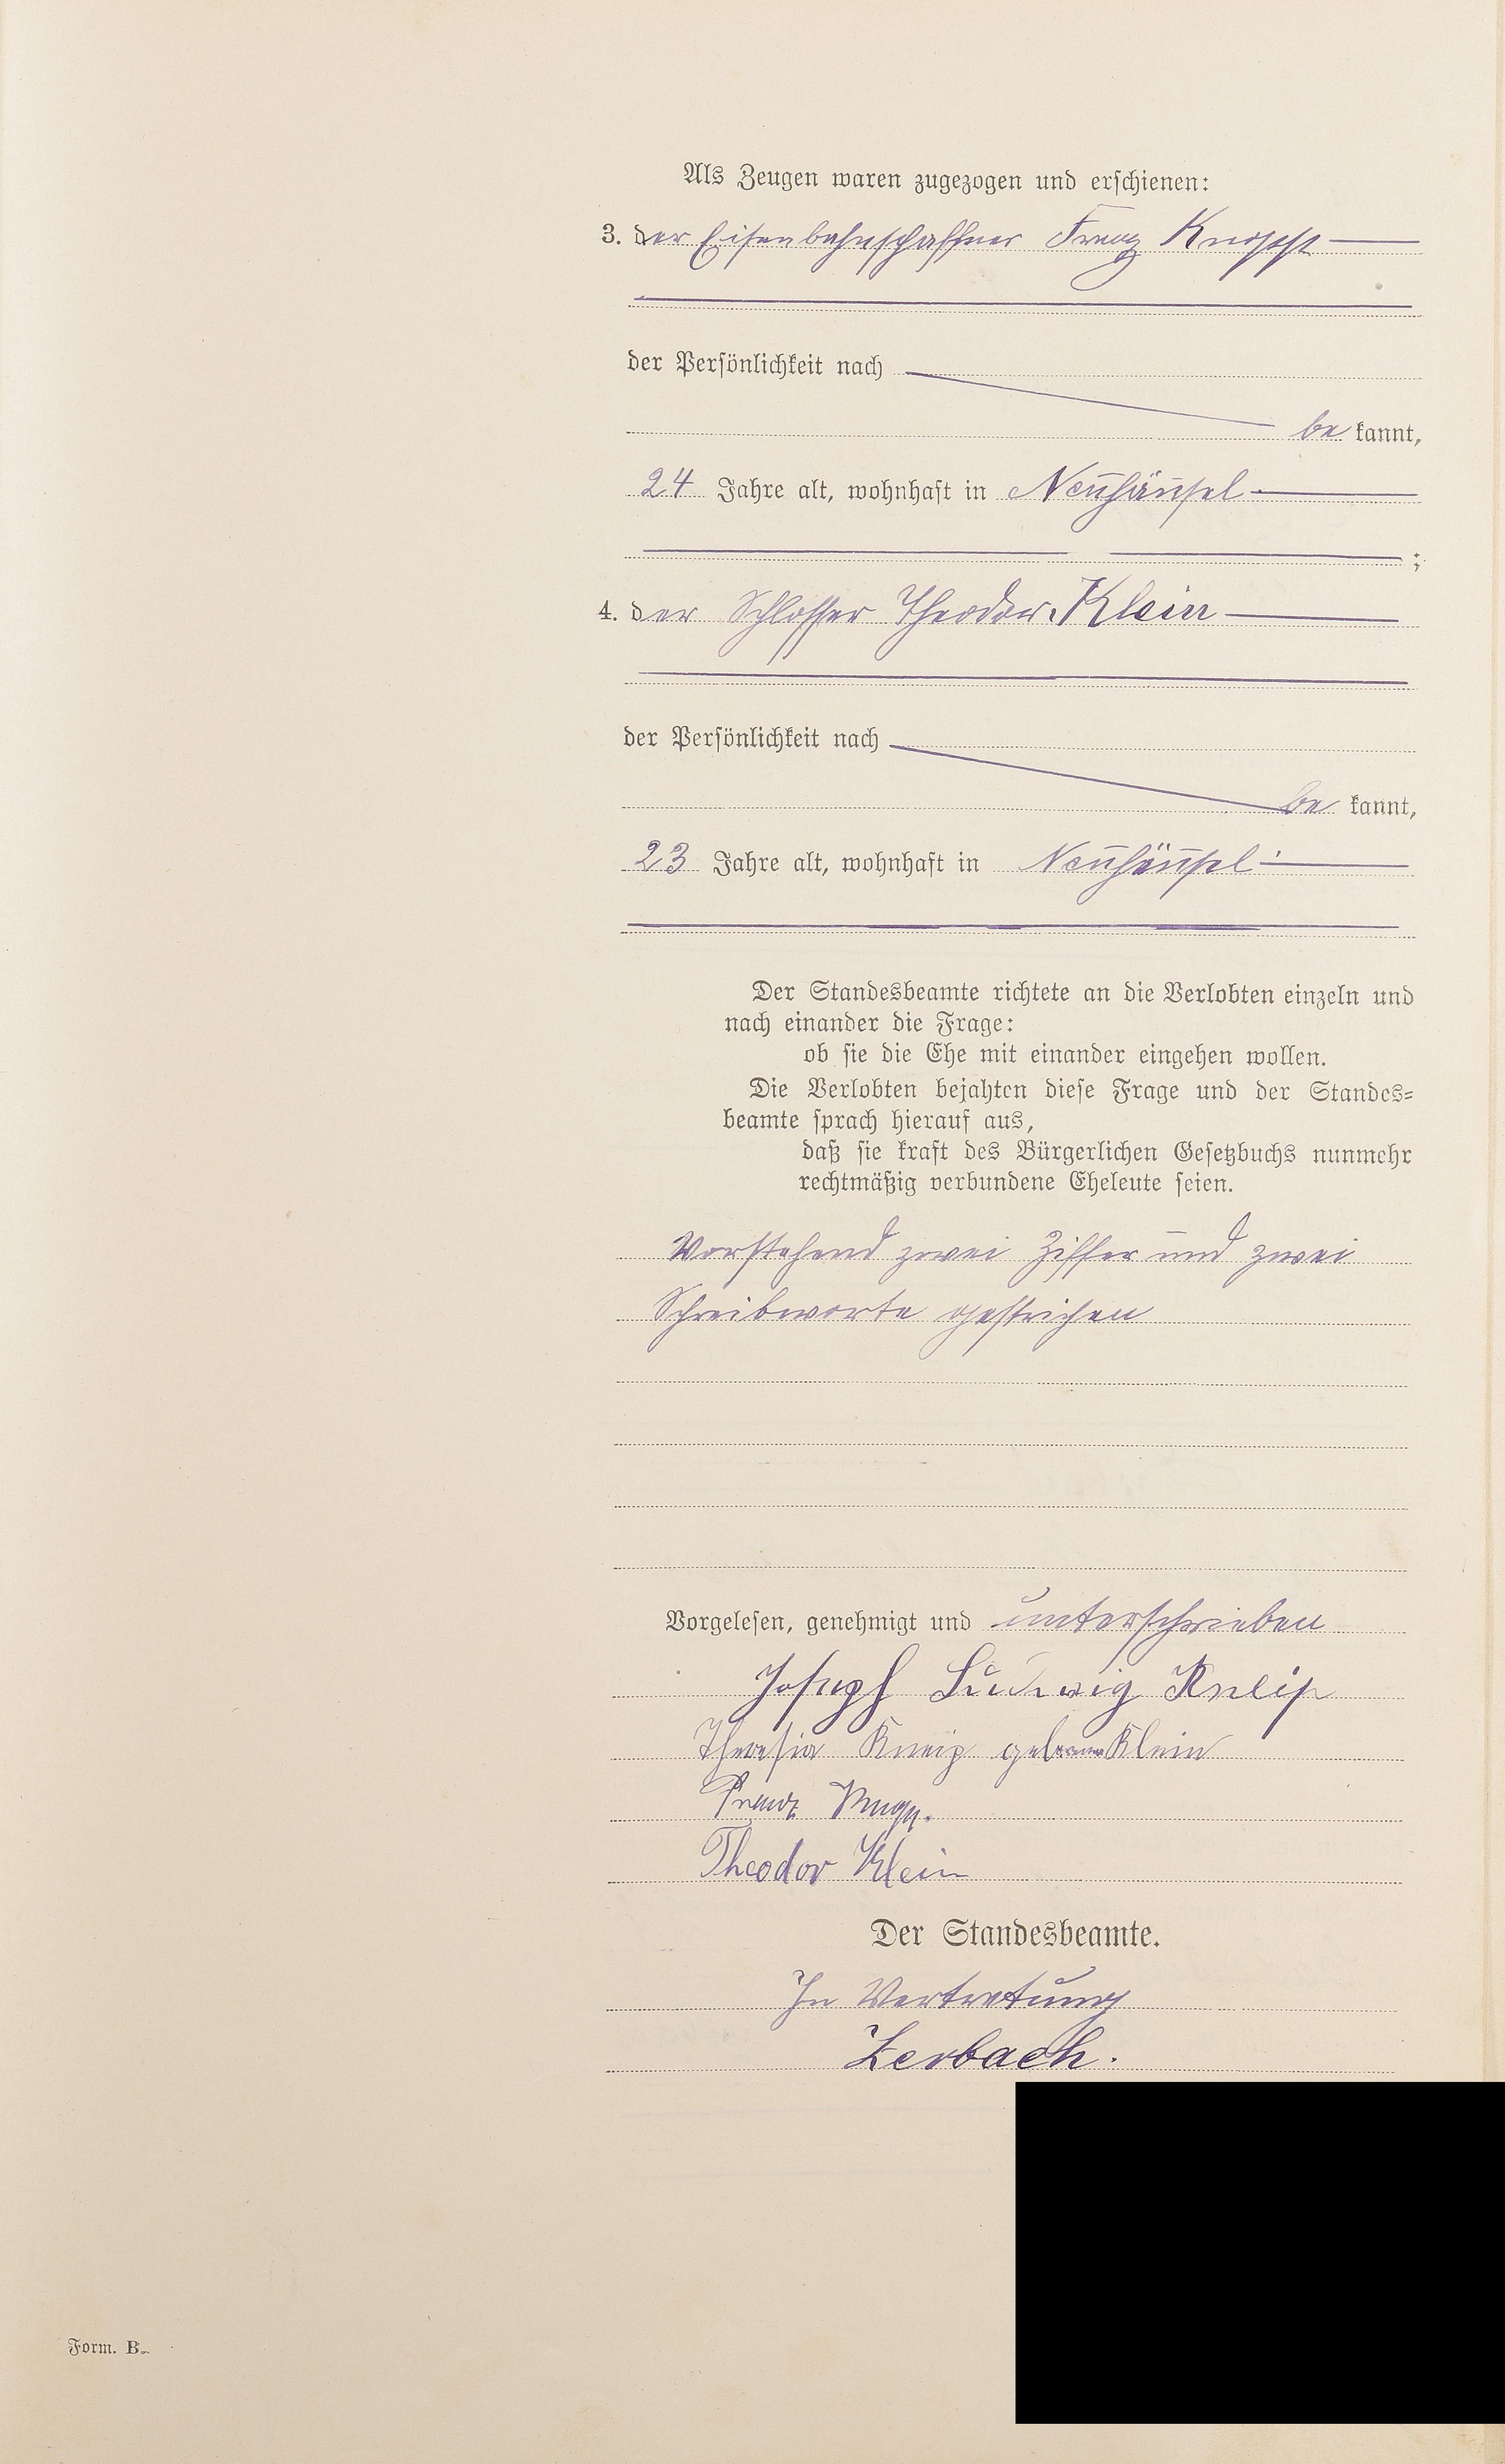 Als Zeugen waren zugezogen und erschienen:
3. der Eisenbahnschaffner Franz
der Persönlichkeit nach
be kannt,
24 Jahre alt, wohnhaft in Neuhäusel
;
4. der Schlosser Theodor Klein
der Persönlichkeit nach
be kannt,
23 Jahre alt, wohnhaft in Neuhäusel
Der Standesbeamte richtete an die Verlobten einzeln und
nach einander die Frage:
ob sie die Ehe mit einander eingehen wollen.
Die Verlobten bejahten diese Frage und der Standes=
beamte sprach hierauf aus,
daß sie kraft des Bürgerlichen Gesetzbuchs nunmehr
rechtmäßig verbundene Eheleute seien.
Vorstehend zwei Ziffer und zwei
Schreibworte gestrichen
Vorgelesen, genehmigt und unterschrieben
Joseph Ludwig Kneip
Theresia Kneip geborene Klein
Franz
Theodor Klein
Der Standesbeamte.
In Vertretung
Zerbach.
Form. B.